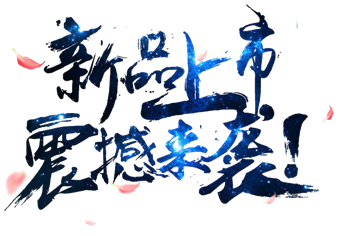 新品上市
震撼来袭!